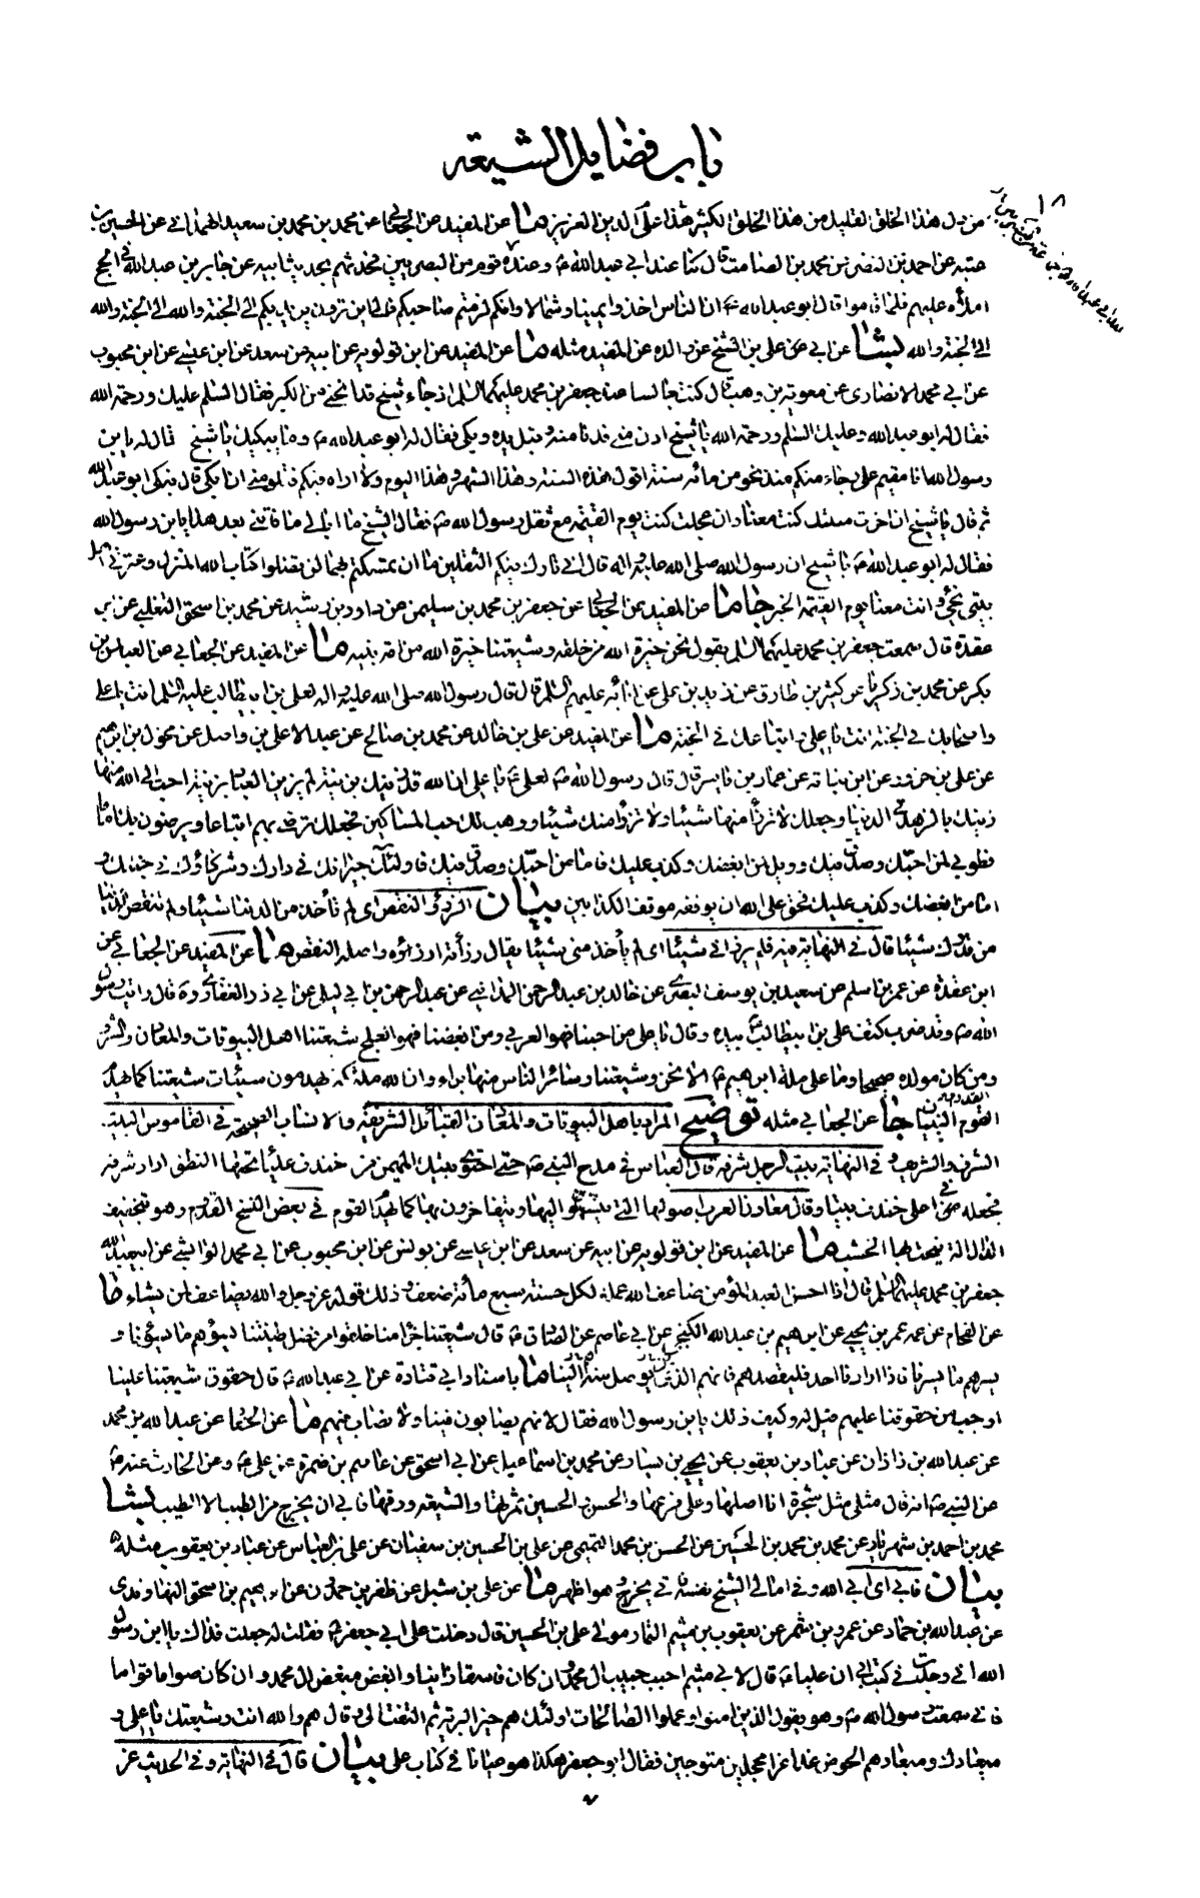 باب فضايل الشيعة
١٨
من دل هذا الخلق القليل من هذا الخلق الكثير هذا على الدين العزيز ما عن المفيد عن الجعابي عن محمد بن محمد بن سعيد الهمداني عن الحسين بن
عتبة عن احمد بن النضر عن محمد بن الصامت قال كنا عند ابي عبدالله ع وعنده قوم من البصريين فحدثهم بحديث ابيه عن جابر بن عبدالله في الحج
املاه عليهم فلما قاموا قال ابو عبدالله ع ان الناس اخذوا يمينا وشمالا وانكم لزمتم صاحبكم فالى اين ترون يريد بكم الى الجنة والله الى الجنة والله
الى الجنة والله بشا عن ابي علي بن الشيخ عن والده عن المفيد مثله ما عن المفيد عن ابن قولويه عن ابيه عن سعد عن ابن عيسى عن ابن محبوب
عن ابي محمد الانصاري عن معوية بن وهب قال كنت جالسا عند جعفر بن محمد عليهما السلم اذ جاء شيخ قد انحنى من الكبر فقال السلم عليك ورحمة الله
فقال له ابو عبدالله وعليك السلم ورحمة الله يا شيخ ادن مني فدنا منه وقبل يده وبكى فقال له ابو عبدالله ع وما يبكيك يا شيخ قال له يا بن
رسول الله انا مقيم على رجاء منكم منذ نحو من مائة سنة اقول هذه السنة وهذا الشهر وهذا اليوم ولا اراه فيكم فتلومني ان ابكي قال فبكى ابو عبدالله
ثم قال يا شيخ ان اخرت منيتك كنت معنا وان عجلت كنت يوم القيمة مع ثقل رسول الله ص فقال الشيخ ما ابالي ما فاتني بعد هذا يا بن رسول الله
فقال له ابو عبدالله ع يا شيخ ان رسول الله صلى الله عليه واله قال اني تارك فيكم الثقلين ما ان تمسكتم بهما لن تضلوا كتاب الله المنزل وعترتي اهل
بيتي تجئ وانت معنا يوم القيمة الخبر جا ما عن المفيد عن الجعابي عن جعفر بن محمد بن سليمن عن داود بن رشيد عن محمد بن اسحق الثعلبي عن ابي
عقدة قال سمعت جعفر بن محمد عليهما السلم يقول نحن خيرة الله من خلقه وشيعتنا خيرة الله من امة نبيه ما عن المفيد عن الجعابي عن العباس بن
بكر عن محمد بن زكريا عن كثير بن طارق عن زيد بن علي عن ابائه عليهم السلم قال قال رسول الله صلى الله عليه واله لعلي بن ابيطالب عليه السلم انت يا علي
واصحابك في الجنة انت يا علي واتباعك في الجنة ما عن المفيد عن علي بن خالد عن محمد بن صالح عن عبد الاعلى بن واصل عن مخول بن ابرهيم
عن علي بن حزور عن ابن نباته عن عمار بن ياسر قال قال رسول الله ص لعلي ع يا علي ان الله قد زينك بزينة لم يزين العباد بزينة احب الى الله منها
زينك بالزهد في الدنيا وجعلك لا ترزأ منها شيئا ولا ترزأ منك شيئا ووهب لك حب المساكين فجعلك ترضى بهم اتباعا ويرضون بك اماما
فطوبى لمن احبك وصدق فيك وويل لمن ابغضك وكذب عليك فاما من احبك وصدق فيك فاولئك جيرانك في دارك وشركاؤك في جنتك و
اما من ابغضك وكذب عليك فحق على الله ان يوقفه موقف الكذابين بيان الرزء النقص اي لم تأخذ من الدنيا شيئا ولم تنقص الدنيا
من قدرك شيئا قال في النهاية فيه فلم يرزأني شيئا اي لم يأخذ مني شيئا يقال رزأته ارزؤه واصله النقص ما عن المفيد عن الجعابي عن
ابن عقدة عن عمر بن اسلم عن سعيد بن يوسف البصري عن خالد بن عبدالرحمن المدائني عن عبدالرحمن بن ابي ليلى عن ابي ذر الغفاري ره قال رايت رسول
الله ص وقد ضرب كتف علي بن ابيطالب بيده وقال يا علي من احبنا فهو العربي ومن ابغضنا فهو العلج شيعتنا اهل البيوتات والمعادن والشرف
ومن كان مولده صحيحا وما على ملة ابرهيم ع الا نحن وشيعتنا وسائر الناس منها براء وان لله ملئكة يهدمون سيئات شيعتنا كما يهدم
القوم البنيان جا عن الجعابي مثله توضيح المراد باهل البيوتات والمعادن القبائل الشريفة والانساب الصحيحة في القاموس البيت
الشرف والشريف وفي النهاية بيت الرجل شرفه قال العباس في مدح النبي ص حتى احتوى بيتك المهيمن من خندف علياء تحتها النطق اراد شرفه
فجعله في اعلى خندف بيتا وقال معادن العرب اصولها التي ينسبون اليها ويتفاخرون بها كما يهدم القوم في بعض النسخ القدوم وهو بتخفيف
الدال الة ينحت بها الخشب ما عن المفيد عن ابن قولويه عن ابيه عن سعد عن ابن عيسى عن يونس عن ابن محبوب عن ابي محمد الوابشي عن ابيعبدالله
جعفر بن محمد عليهما السلم قال اذا احسن العبد المؤمن ضاعف الله عمله لكل حسنة سبع مائة ضعف وذلك قوله عز وجل والله يضاعف لمن يشاء ما
عن الفحام عن عمه عمر بن يحيى عن ابرهيم بن عبدالله الكنيخي عن ابي عاصم عن الصادق ع قال شيعتنا جزء منا خلقوا من فضل طينتنا يسؤهم ما يسؤنا و
يسرهم ما يسرنا فاذا ارادنا احد فليقصدهم فانهم الذي يوصل منه الينا ما باسناد ابي قتادة عن ابي عبدالله ع قال حقوق شيعتنا علينا
اوجب من حقوقنا عليهم قيل له وكيف ذلك يا بن رسول الله فقال لانهم يصابون فينا ولا نصاب فيهم ما عن الحفار عن عبدالله بن محمد
عن عبدالله بن زاذان عن عباد بن يعقوب عن يحيى بن يسار عن محمد بن اسماعيل عن ابي اسحق عن عاصم بن ضمرة عن علي ع وعن الحارث عنه ع
عن النبي ص انه قال مثلي مثل شجرة انا اصلها وعلي فرعها والحسن والحسين ثمرتها والشيعة ورقها فابى ان يخرج من الطيب الا الطيب بشا
محمد بن احمد بن شهريار عن محمد بن محمد بن الحسين عن الحسن بن محمد التميمي عن علي بن الحسين بن سفيان عن علي بن العباس عن عباد بن يعقوب مثله
بيان فابى اي ابى الله وفي امالي الشيخ بنفسه فاني يخرج وهو اظهر ما عن علي بن شبل عن ظفر بن حمدون عن ابرهيم بن اسحق النهاوندي
عن عبدالله بن حماد عن عمرو بن شمر عن يعقوب بن ميثم التمار مولى علي بن الحسين قال دخلت على ابي جعفر ع فقلت له جعلت فداك يا ابن رسول
الله اني وجدت في كتب ابي ان عليا ع قال لابي ميثم احبب حبيب ال محمد وان كان فاسقا زانيا وابغض مبغض ال محمد وان كان صواما قواما
فاني سمعت رسول الله ص وهو يقول الذين امنوا وعملوا الصالحات اولئك هم خير البرية ثم التفت الي وقال هم والله انت وشيعتك يا علي و
ميعادك وميعادهم الحوض غدا غرا محجلين متوجين فقال ابو جعفر هكذا هو عيانا في كتاب علي بيان قال في النهاية وفي الحديث غر